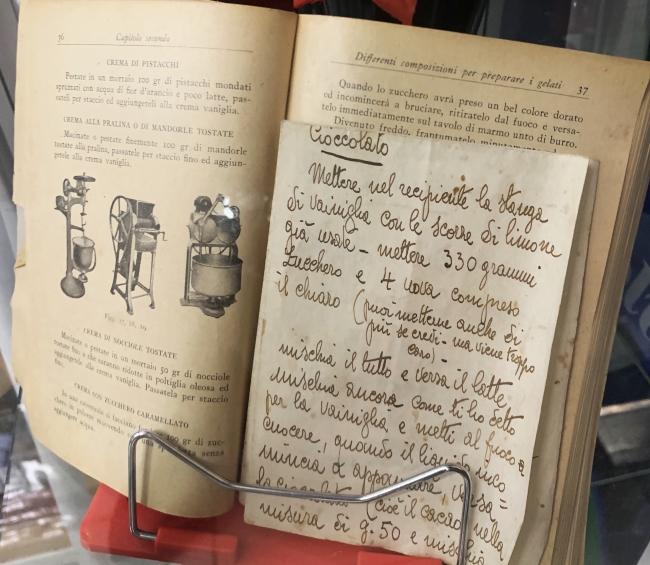 36 Capitolo secondo
CREMA DI PISTACCHI
Pestate in un mortaio 100 gr di pistacchi mondati
spruzzati con acqua di fior d'arancio e poco latte, pas-
sateli per staccio ed aggiungeteli alla crema vaniglia.
CREMA ALLA PRALINA O DI MANDORLE TOSTATE
Macinate o pestate finemente 100 gr. di mandorle
tostate alla pralina, passatele per staccio fino ed aggiun-
getele alla crema vaniglia.
Figg. 17, 18, 19
CREMA DI NOCCIOLE TOSTATE
Macinate o pestate in un mortaio 50 gr di nocciole
tostate fino a che saranno ridotte in poltiglia oleosa ed
aggiungetele alla crema vaniglia. Passatela per staccio
fino.
CREMA CON ZUCCHERO CARAMELLATO
In una casseruola si facciano 100 gr di zuc-
chero in polvere muovendo con una senza
aggiungere acqua.
Differenti composizioni per preparare i gelati 37
Quando lo zucchero avrà preso un bel colore dorato
ed incomincerà a bruciare, ritiratelo dal fuoco e versa-
telo immediatamente sul tavolo di marmo unto di burro.
Divenuto freddo, frantumatelo minutamente
Cioccolato
Mettere nel recipiente la stanga
di vainiglia con le scorze di limone
già usate - mettere 330 grammi
zucchero e 4 uova compreso
il chiaro (puoi metterne anche di
più se credi - ma viene troppo
caro) -
mischia il tutto e versa il latte
mischia ancora come ti ho detto
per la vainiglia e metti al fuoco a
cuocere, quando il liquido inco
mincia a versa=
la cioccolata (cioè il cacao) nella
misura di g. 50 e mischia